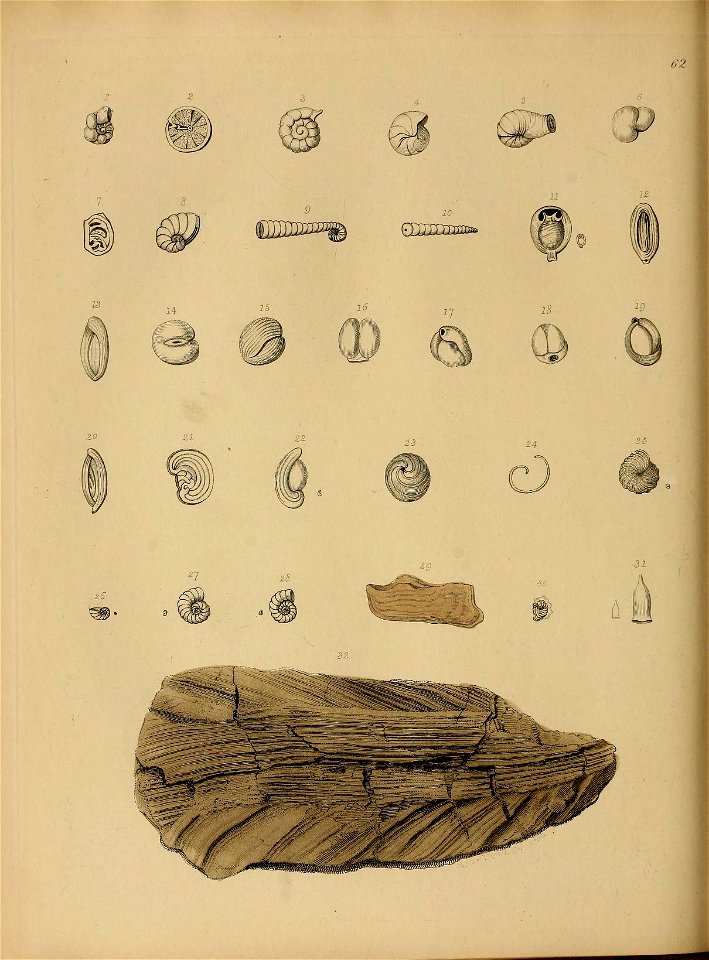 62
1 2 3 4 5 6
7 8 9 10 11 12
13 14 15 16 17 18 19
20 21 22 23 24 25
26 27 28 29 30 31
32